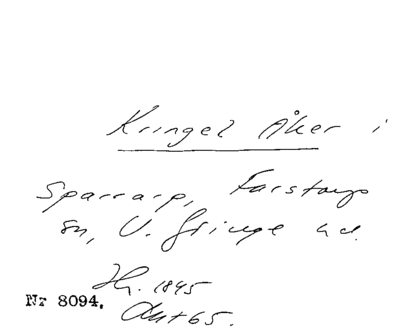 Kringel Åker i
Sparrarp, Farstorps
sn, V. Göinge hd.
Hr. 1845
Akt 65.
Nr 8094.